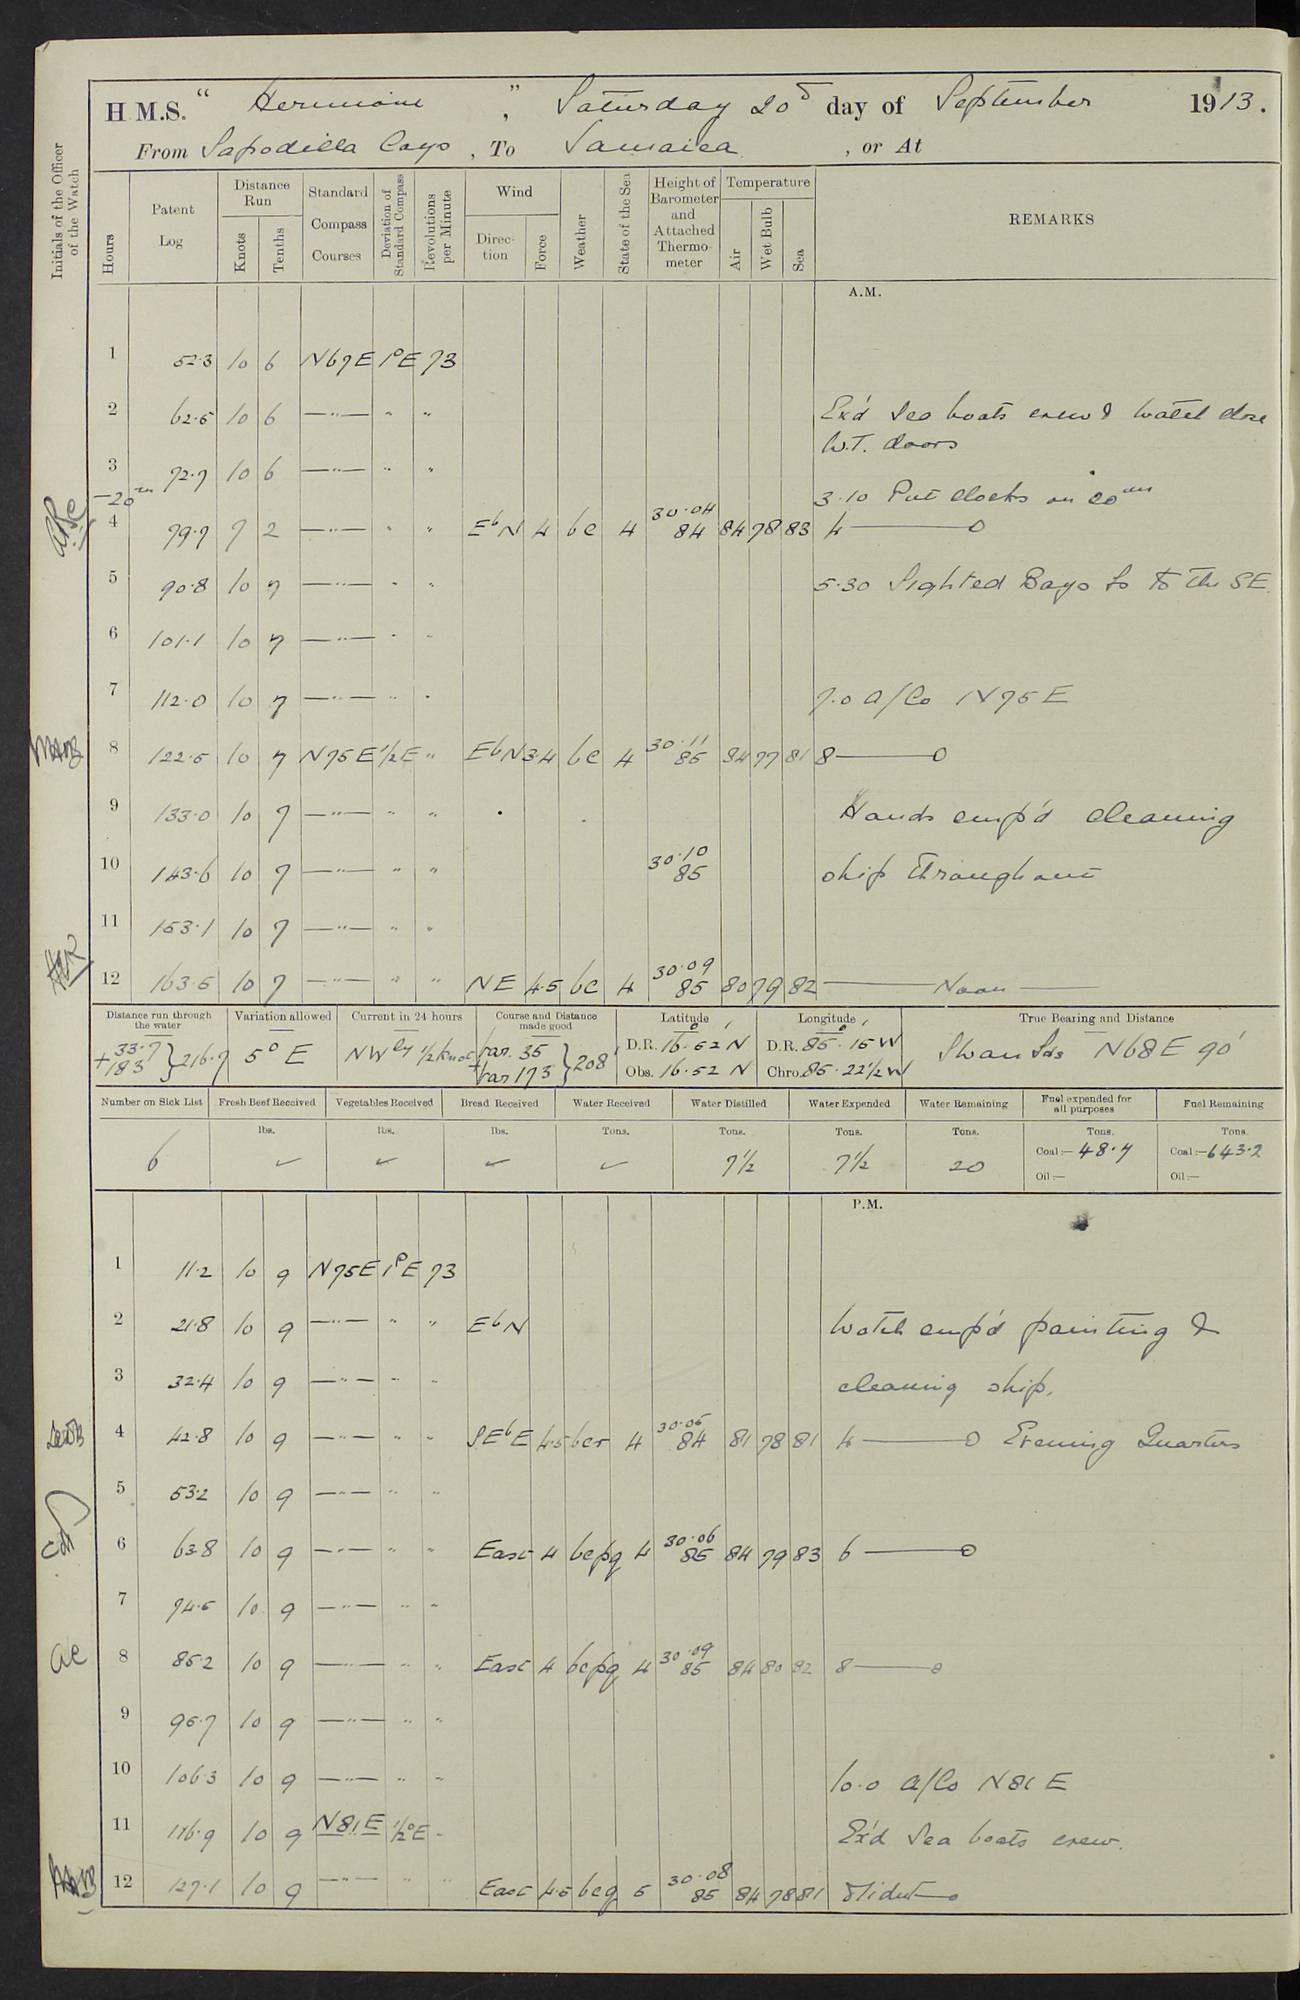 H.M.S. " Hermione ", Saturday 20th day of September 1913.
From Sapodilla Cays, To Jamaica, or At
Initials of the Officer of the Watch
Hours | Patent Log | Distance Run | Knots | Tenths | Standard Compass Courses | Deviation of Standard Compass | Revolutions per Minute | Wind | Direction | Force | Weather | State of the Sea | Height of Barometer and Attached Thermometer | Temperature | Air | Wet Bulb | Sea | REMARKS
A.M.
1 52.3 10 6 N67E 1°E 73
2 62.5 10 6 —"— " " Ex'd Sea boats crew & watch close
W.T. doors
3 72.7 10 6 —"— " "
—20m 3.10 Put clocks on 20m
4 79.7 7 2 —"— " " EbN 4 bc 4 30.04 84 84 78 83 4 ——o
5 90.8 10 7 —"— " " 5.30 Sighted Bayo to the SE.
6 101.1 10 7 —"— " "
7 112.0 10 7 —"— " " 7.0 A/Co N75E
8 122.5 10 7 N75E ½E " EbN 3.4 bc 4 30.11 85 84 77 81 8 ——o
9 133.0 10 7 —"— " " Hands emp'd cleaning
10 143.6 10 7 —"— " " 30.10 85 ship throughout
11 153.1 10 7 —"— " "
12 163.5 10 7 —"— " " NE 4.5 bc 4 30.09 85 80 79 82 —— Noon ——
Distance run through the water | Variation allowed | Current in 24 hours | Course and Distance made good | Latitude | Longitude | True Bearing and Distance
33.7 + 183 } 216.7 | 5° E | NWly ½ knot | 35 173 } 208' | D.R. 16° 52' N | D.R. 85° 15' W | Swan Ids N68E 90'
Obs. 16.52 N | Chro. 85.22½ W
Number on Sick List | Fresh Beef Received | Vegetables Received | Bread Received | Water Received | Water Distilled | Water Expended | Water Remaining | Fuel expended for all purposes | Fuel Remaining
lbs. | lbs. | lbs. | Tons. | Tons. | Tons. | Tons. | Tons. | Tons.
6 | ✓ | ✓ | ✓ | ✓ | 7½ | 7½ | 20 | Coal:— 48.7 | Coal:— 643.2
Oil:— | Oil:—
P.M.
1 11.2 10 9 N75E 1°E 73
2 21.8 10 9 —"— " " EbN Watch emp'd painting &
3 32.4 10 9 —"— " " cleaning ship.
4 42.8 10 9 —"— " " SEbE 4.5 bcr 4 30.05 84 81 78 81 4 ——o Evening Quarters
5 53.2 10 9 —"— " "
6 63.8 10 9 —"— " " East 4 bcpq 4 30.06 85 84 79 83 6 ——o
7 74.5 10 9 —"— " "
8 85.2 10 9 —"— " " East 4 bcpq 4 30.09 85 84 80 82 8 ——o
9 95.7 10 9 —"— " "
10 106.3 10 9 —"— " " 10.0 A/Co N81E
11 116.9 10 9 N81E ½°E " Ex'd Sea boats crew.
12 127.1 10 9 —"— " " East 4.5 bcq 5 30.08 85 84 78 81 Midnt —o